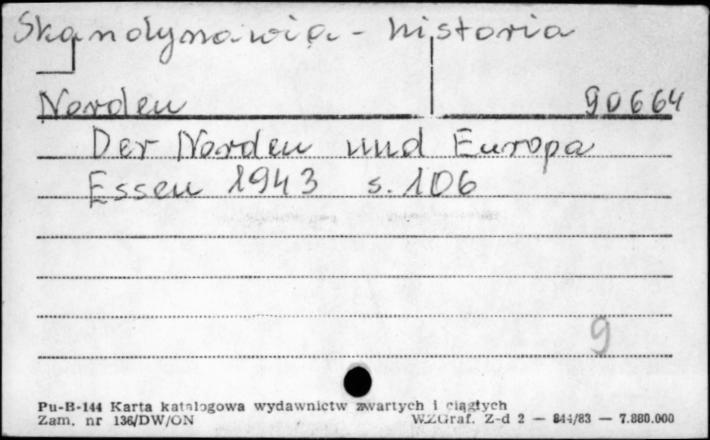 Skandynawia - historia
Norden 90664
Der Norden und Europa
Essen 1943 s. 106
9
Pu-B-144 Karta katalogowa wydawnictw zwartych i ciągłych
Zam. nr 136/DW/ON WZGraf. Z-d 2 — 844/83 — 7.880.000